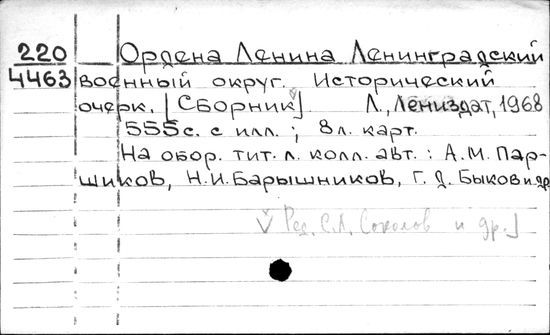 220 Ордена Ленина Ленинградский
4463 военный округ. Исторический
очерк. [Сборник] Л., Лениздат, 1968
555с. с илл.; 8л. карт.
На обор. тит. л. колл. авт.: А.М. Пар-
шиков, Н.И. Барышников, Г. Д. Быков и др.
Ред. С.Л. Соколов и др.]